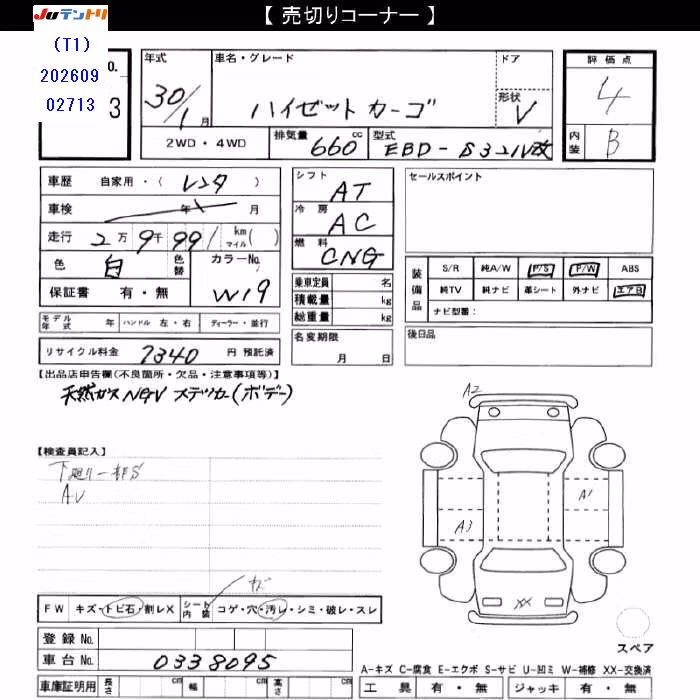 【 売切りコーナー 】
JUテントリ
(T1)
202609
02713
o.
3
年式
30/1月
車名・グレード
ハイゼット カーゴ
ドア
形状
V
評価点
4
内装
B
2WD・4WD
排気量
660 cc
型式
EBD-S321V改
車歴 自家用・( レンタ )
車検 年 月
走行 2万9千991 km マイル( )
色 白 色替 カラーNo.
W19
保証書 有・無
シフト AT
冷房 AC
燃料 CNG
乗車定員 名
積載量 kg
総重量 kg
名変期限
月 日
セールスポイント
装備品
S/R 純A/W P/S P/W ABS
純TV 純ナビ 革シート 外ナビ エアB
ナビ型番:
後日品
モデル年式 年 ハンドル 左・右 ディーラー・並行
リサイクル料金 7340 円 預託済
【出品店申告欄(不良箇所・欠品・注意事項等)】
天然ガス NGV ステッカー(ボデー)
【検査員記入】
下廻り一部S
AU
A2
A1
A3
XX
スペア
キズ
FW キズ・トビ石・割レX シート内装 コゲ・穴・汚レ・シミ・破レ・スレ
登録 No.
車台 No. 0338095
車庫証明用 長さ cm 幅 cm 高さ cm
A-キズ C-腐食 E-エクボ S-サビ U-凹ミ W-補修 XX-交換済
工具 有・無 ジャッキ 有・無